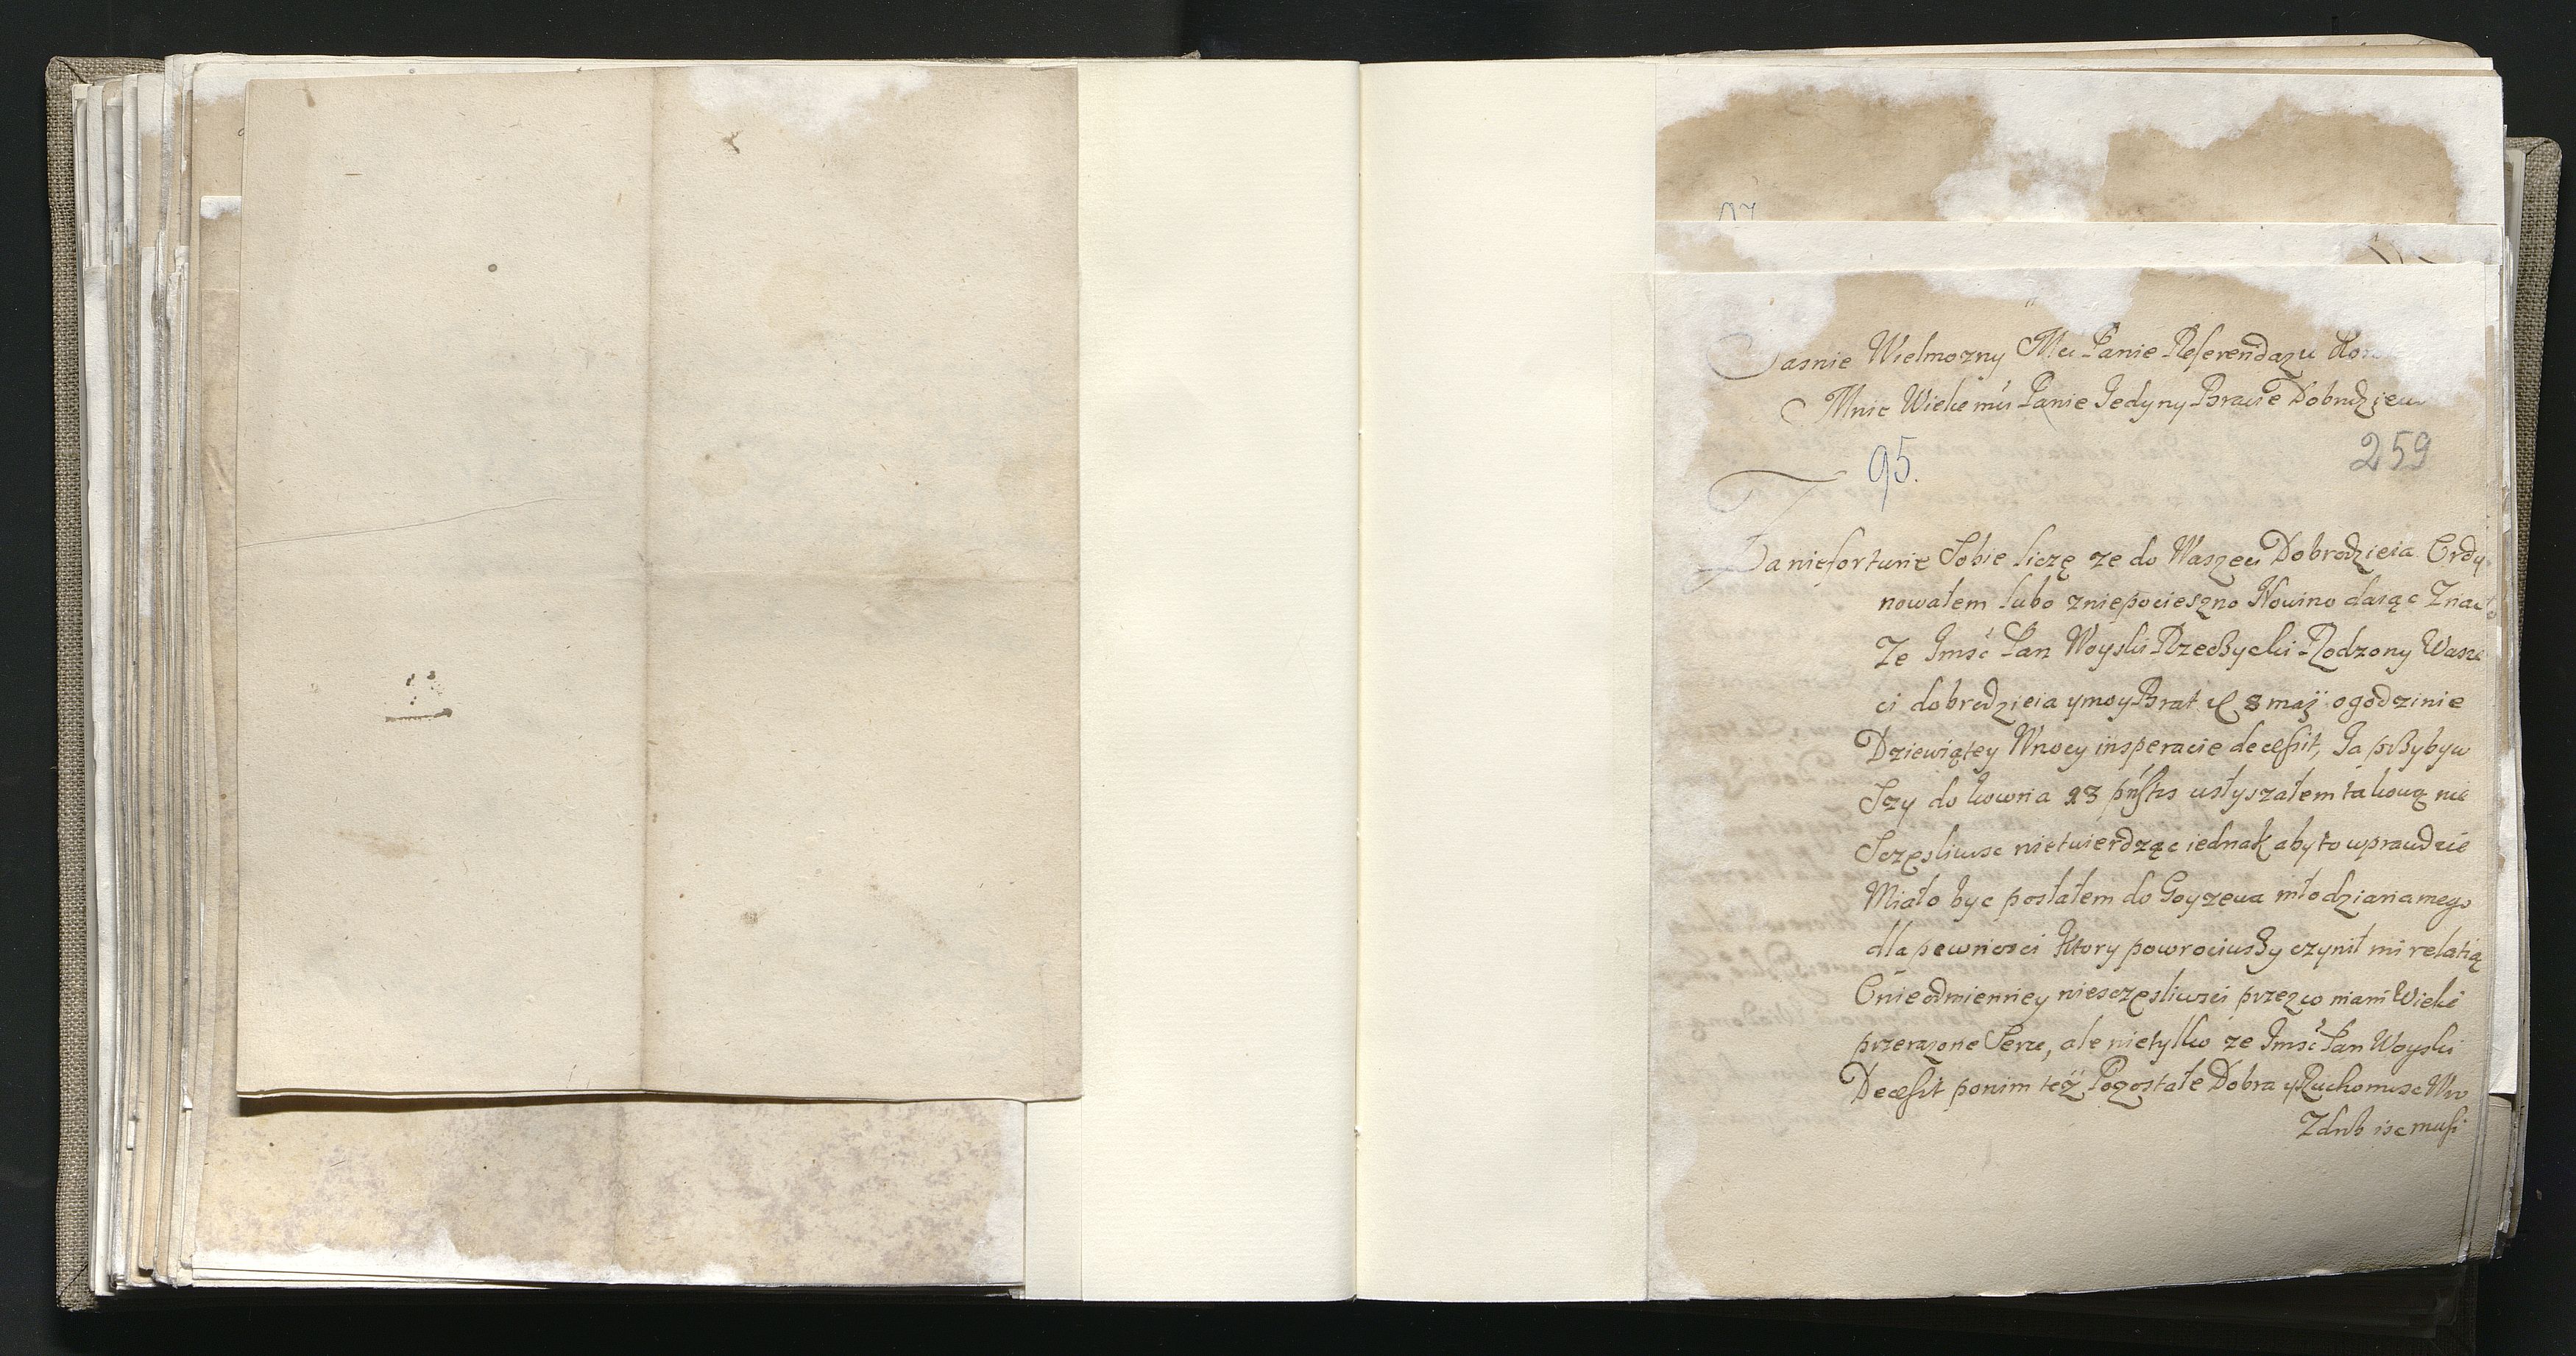 Jasnie Wielmozny Mci Panie Referendazu Kor
Mnie Wielce mći Panie Jedyny Bracie Dobrodzieiu
95.
259
Za niefortunę Sobie liczę ze do Waszeci Dobrodzieia Ordy
nowałem lubo z niepocieszno Nowino daiąc Znac
Ze Jmsć Pan Woyski Rzeczycki Rodzony Wasze
ci dobrodzieia y moy Brat 8 maij o godzinie
Dziewiątey W nocy insperacie decessit, Ja przybyw
Szy do kowna 23 pntis usłyszałem takową nie
Sczęsliwosc nietwierdząc iednak aby to w prawdzie
Miało byc posłałem do Goyzewa młodziana mego
dla pewnosci Ktory powrociwszy czynił mi relatią
O nieodmienney niesczęsliwosci przez co mam Wielce
przerazone Serce, ale nie tylko ze Jmsć Pan Woyski
Decessit ponim też Pozostałe Dobra y Ruchomosc Wni
isc musi